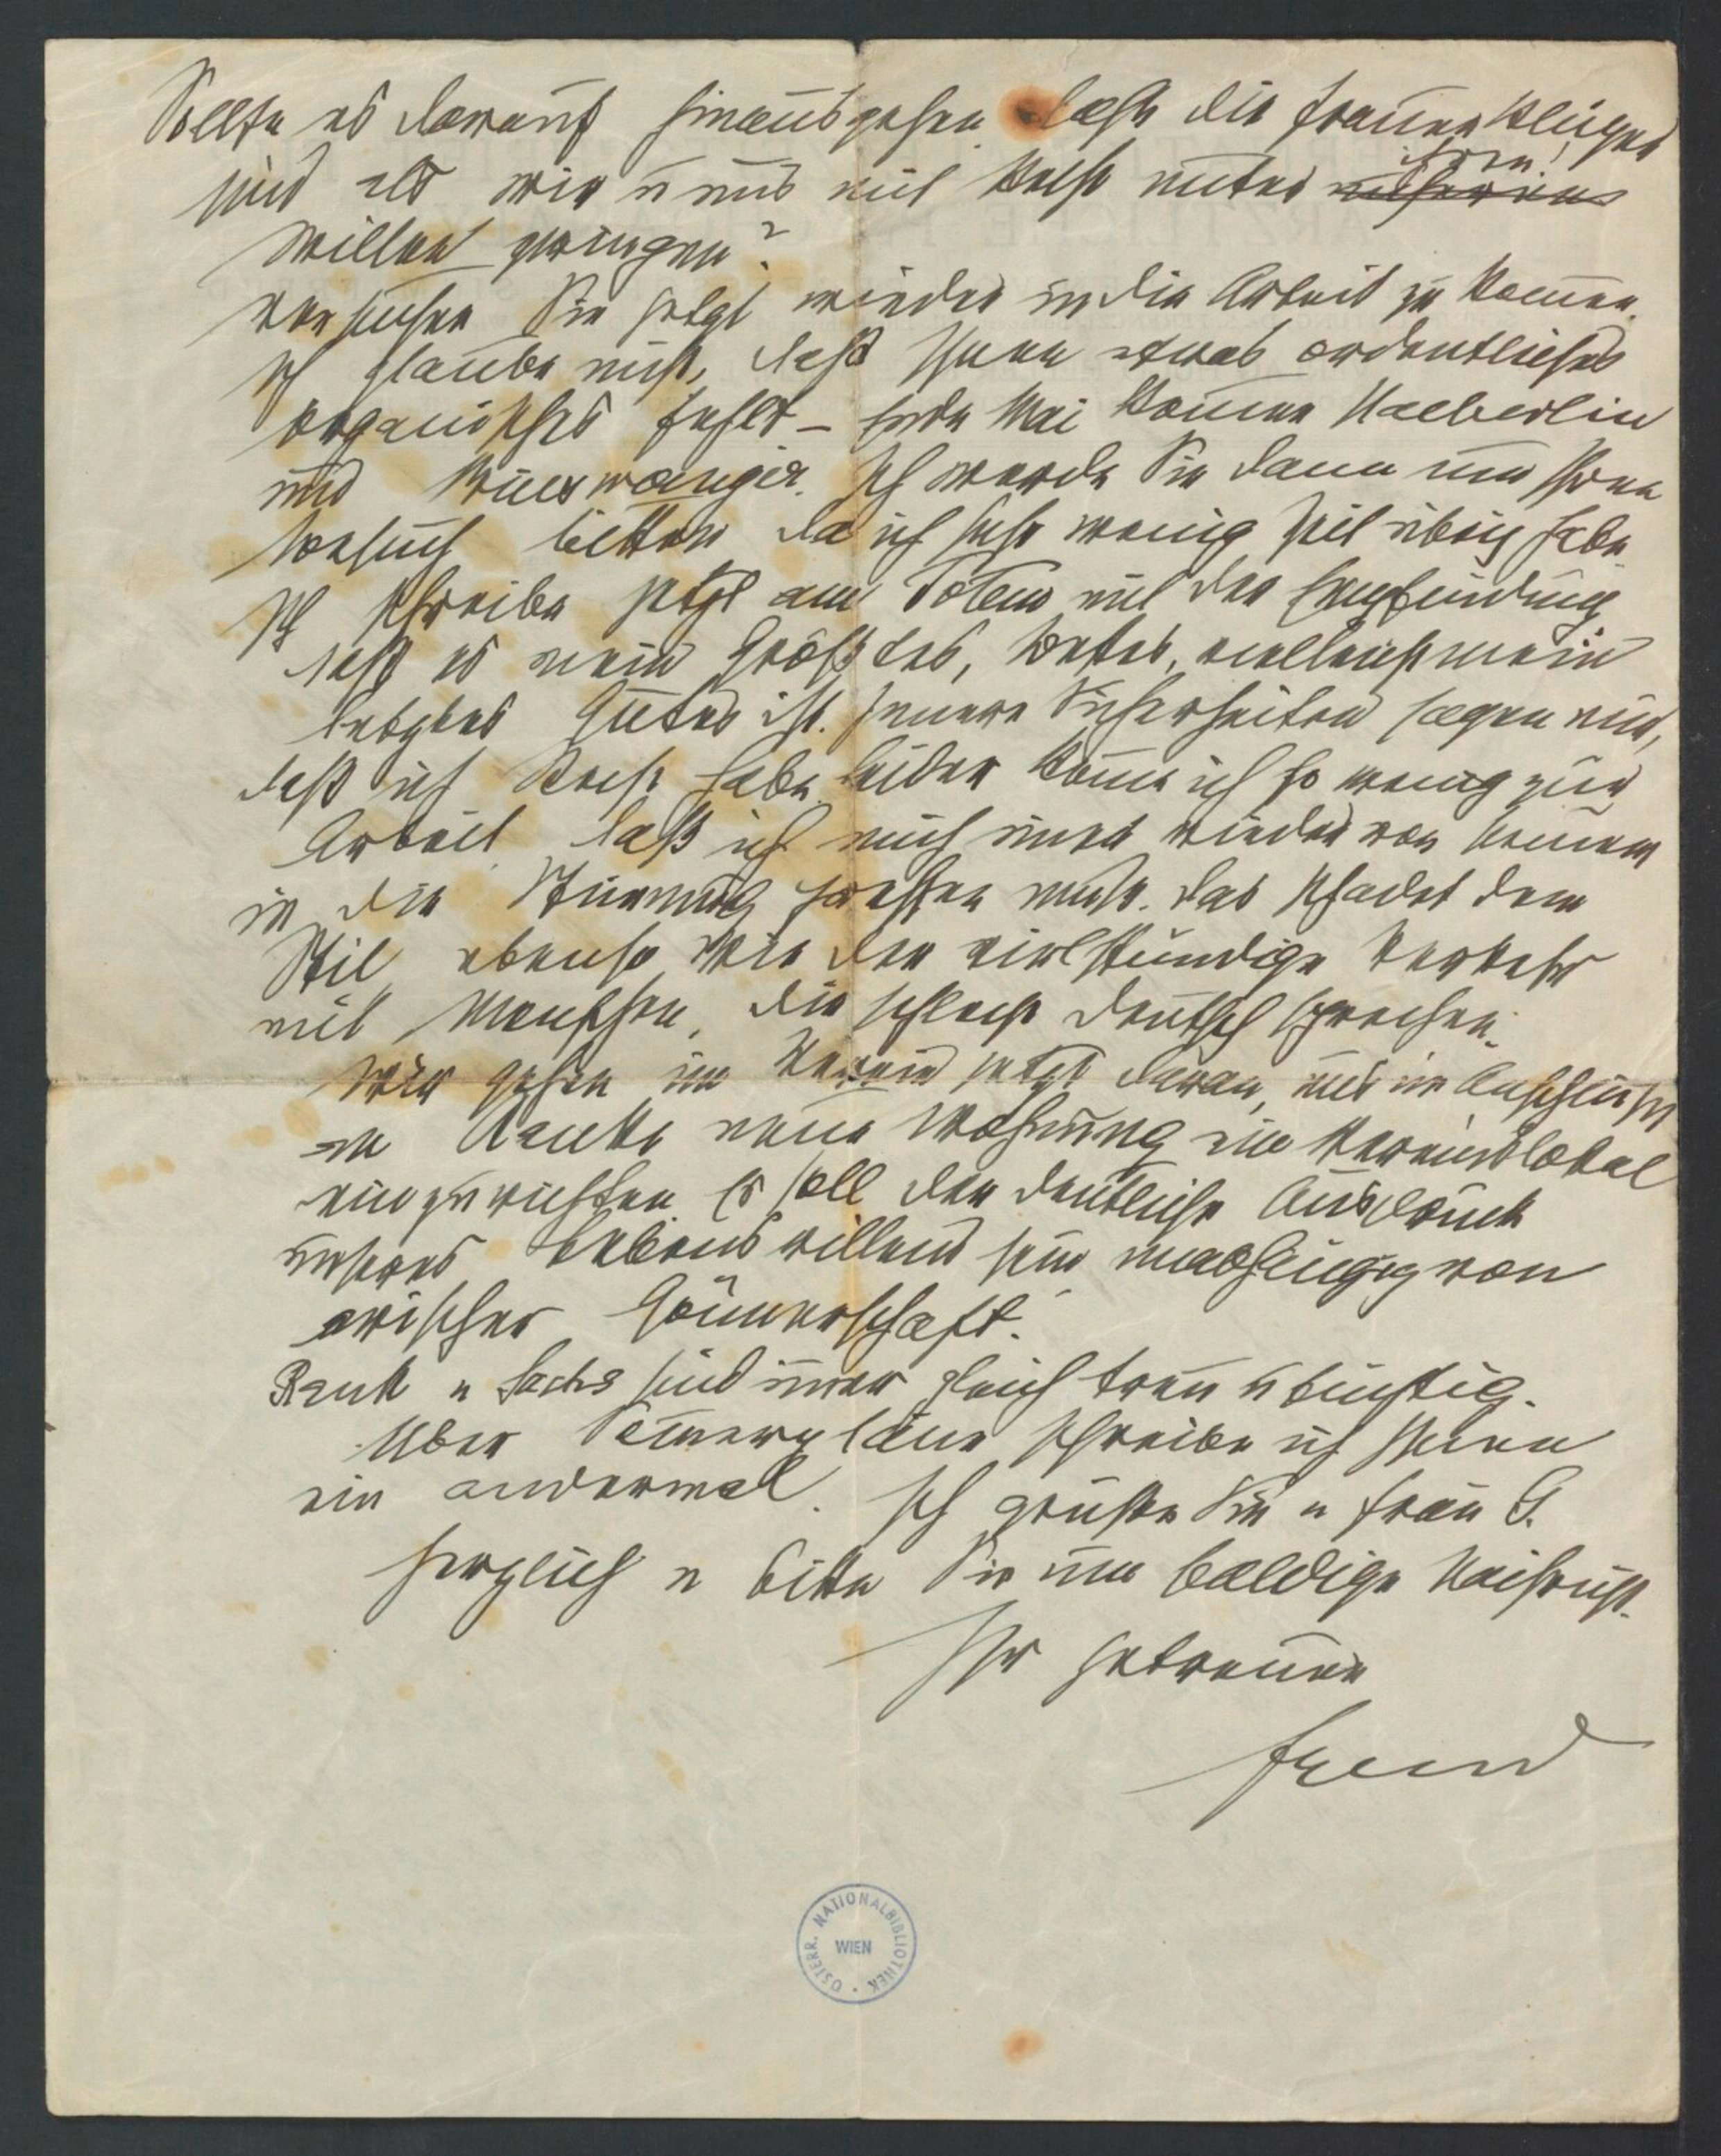 Sollte es darauf hinausgehen, daß die Frauen klüger
sind als wir u uns mit Recht unter ihren
Willen zwingen?
Versuchen Sie jetzt wieder in die Arbeit zu kommen.
Ich glaube nicht, daß Ihnen etwas ordentliches
organisches fehlt – Ende Mai kommen Haeberlin
und Binswanger. Ich werde Sie dann um Ihren
Besuch bitten da ich sehr wenig Zeit übrig habe.
Ich schreibe jetzt am Totem mit der Empfindung
daß es mein Größtes, Bestes, vielleicht mein
letztes Gutes ist. Innere Sicherheiten sagen mir,
daß ich Recht habe. Leider komme ich so wenig zur
Arbeit, daß ich mich immer wieder von neuem
in die Stimmung setzen muß. Das schadet dem
Stil ebenso wie der vielstündige Verkehr
mit Menschen, die schlecht deutsch sprechen.
Wir gehen im Verein jetzt daran, uns im Anschluß
an Ranks neue Wohnung ein Vereinslokal
einzurichten. Es soll der deutliche Ausdruck
unseres Lebenswillens sein unabhängig von
arischer Gönnerschaft.
Rank u Sachs sind immer gleich treu u tüchtig.
Über Sommerpläne schreibe ich Ihnen
ein andermal. Ich grüße Sie u Frau G.
herzlich u bitte Sie um baldige Nachricht.
Ihr getreuer
Freud
ÖSTERR. NATIONALBIBLIOTHEK
WIEN